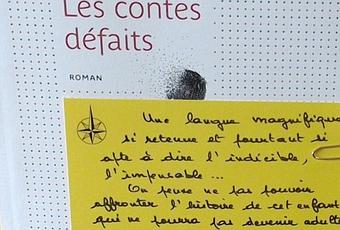 Les contes
défaits
ROMAN
Une langue magnifique
si retenue et pourtant si
apte à dire l'indicible,
l'impensable ...
On pense ne pas pouvoir
affronter l'histoire de cet enfant
qui ne pourra pas devenir adulte